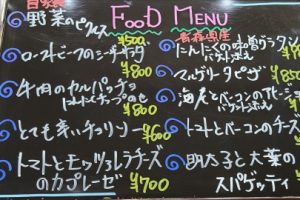 自家製
野菜のピクルス
¥500
ローストビーフのシーザーサラダ
¥800
牛肉のカルパッチョ
¥800
とても辛いチョリソー
¥600
トマトとモッツァレラチーズ
のカプレーゼ
¥700
FOOD MENU
青森県産
にんにくの味噌グラタン
バゲット添え
マルゲリータピザ
海老とベーコンのアヒージョ
バゲット添え
トマトとベーコンのチーズ
明太子と大葉の
スパゲッティ